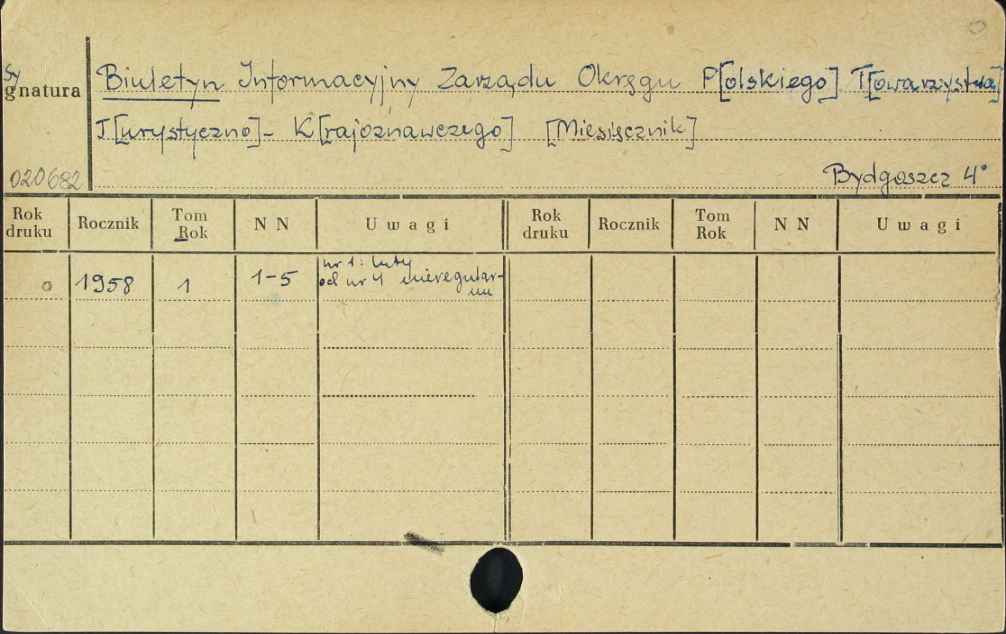 Sygnatura
Biuletyn Informacyjny Zarządu Okręgu P[olskiego] T[owarzystwa]
T[urystyczno]- K[rajoznawczego] [Miesięcznik]
020682
Bydgoszcz 4°
Rok druku Rocznik Tom Rok N N Uwagi Rok druku Rocznik Tom Rok N N Uwagi
1958 1 1-5 nr 1: luty
od nr 4 nieregular-